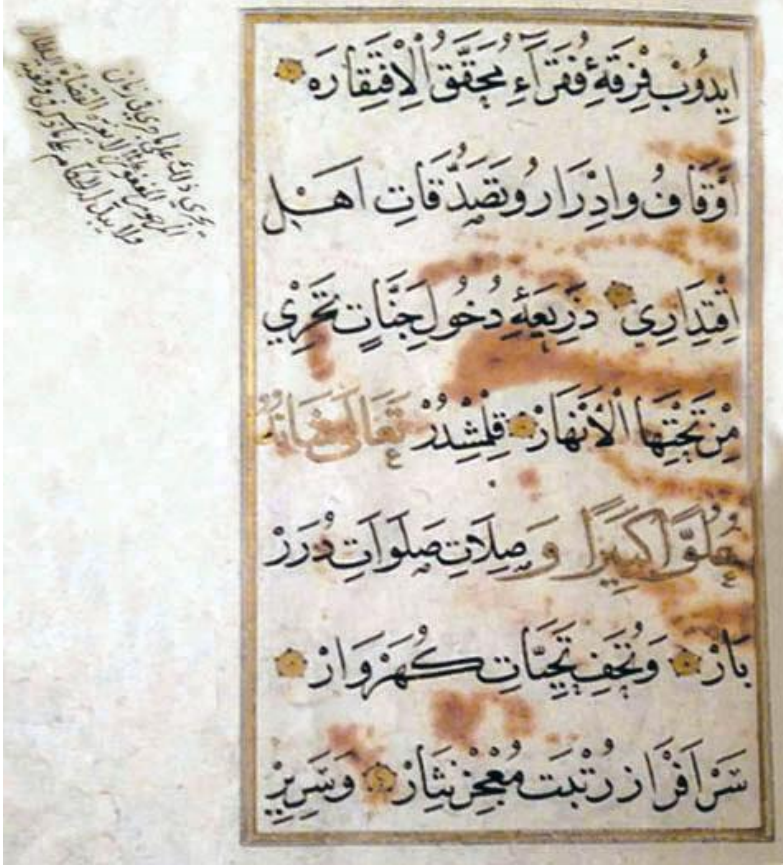 اِيدُوبْ فِرْقَهٔ فُقَرَآءِ مُحَقَّقُ الْاِفْتِقَارَه
اَوْقَافُ وَاِدْرَارُ وَتَصَدُّقَاتِ اَهْلِ
اِقْتِدَارِي ذَرِيعَهٔ دُخُولِ جَنَّاتٍ تَجْرِي
مِنْ تَحْتِهَا الْاَنْهَارْ قِلْمِشْدُرْ تَعَالٰى
عُلُوًّا كَبِيرًا وَ صِلَاتِ صَلَوَاتِ دُرَرْ
بَارْ وَتُحَفِ تَحِيَّاتِ كُهَرْوَارْ
سَرْاَفْرَازِ رُتْبَتِ مُعْجِزْنِثَارْ وَسَرِيرْ
يجرى ذلك على ما جرى فى زمان